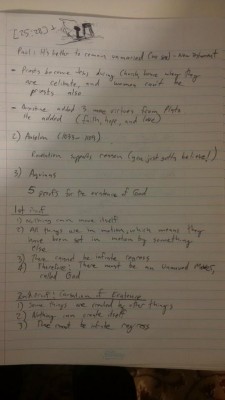 [25:28]
Paul: It's better to remain unmarried (to be) - new testament
- Priests become too, doing Church, hence why they
are celibate, and women can't be
priests also
- Augustine added 3 more virtues from Plato
He added (faith, hope, and love)
2) Anselm (1033-1109)
reason (give just gotta believe!)
3) Aquinas
5 proofs for the existence of God
1st Proof:
1) nothing can move itself
2) All things are in motion, which means they
have been set in motion by something
else
3) There cannot be infinite regress
4) Therefore: There must be an unmoved mover,
called God
2nd proof: Causation of Existence
1) Some things are created by other things
2) Nothing can create itself
3) There cannot be infinite regress